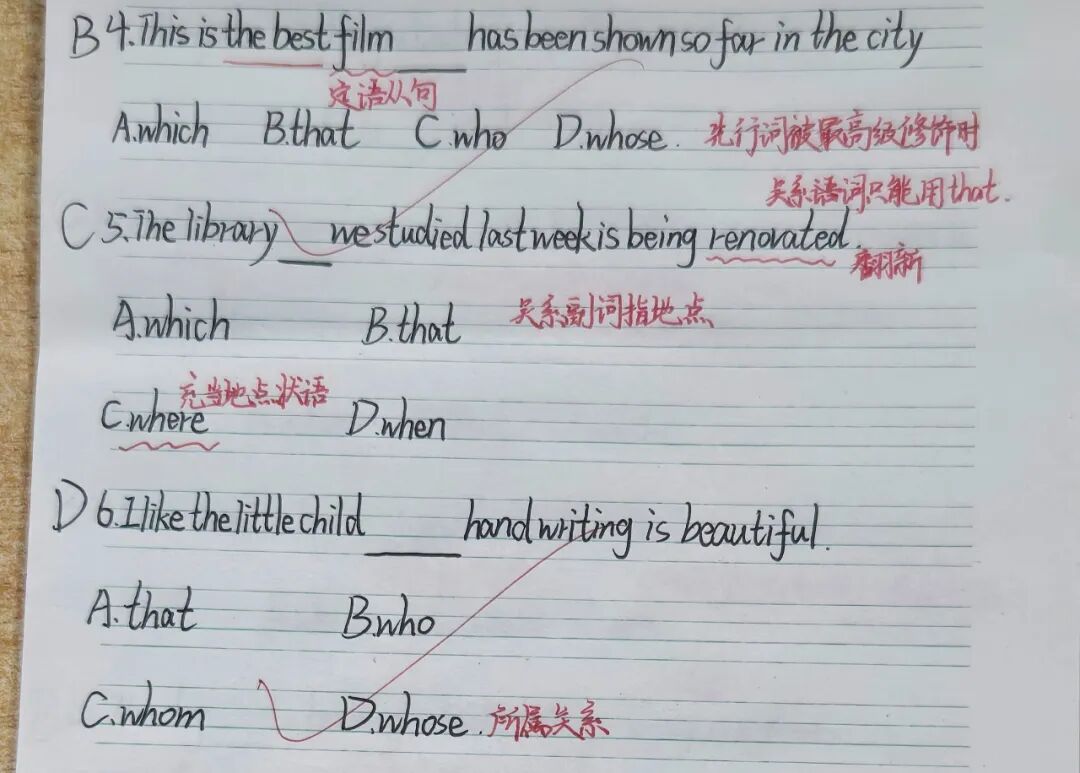 B 4.This is the best film ___ has been shown so far in the city
定语从句
A.which B.that C.who D.whose. 先行词被最高级修饰时
关系语词只能用that.
C 5.The library ___ we studied last week is being renovated.
翻新
A.which B.that 关系副词指地点
充当地点状语
C.where D.when
D 6.I like the little child ___ handwriting is beautiful.
A.that B.who
C.whom D.whose. 所属关系